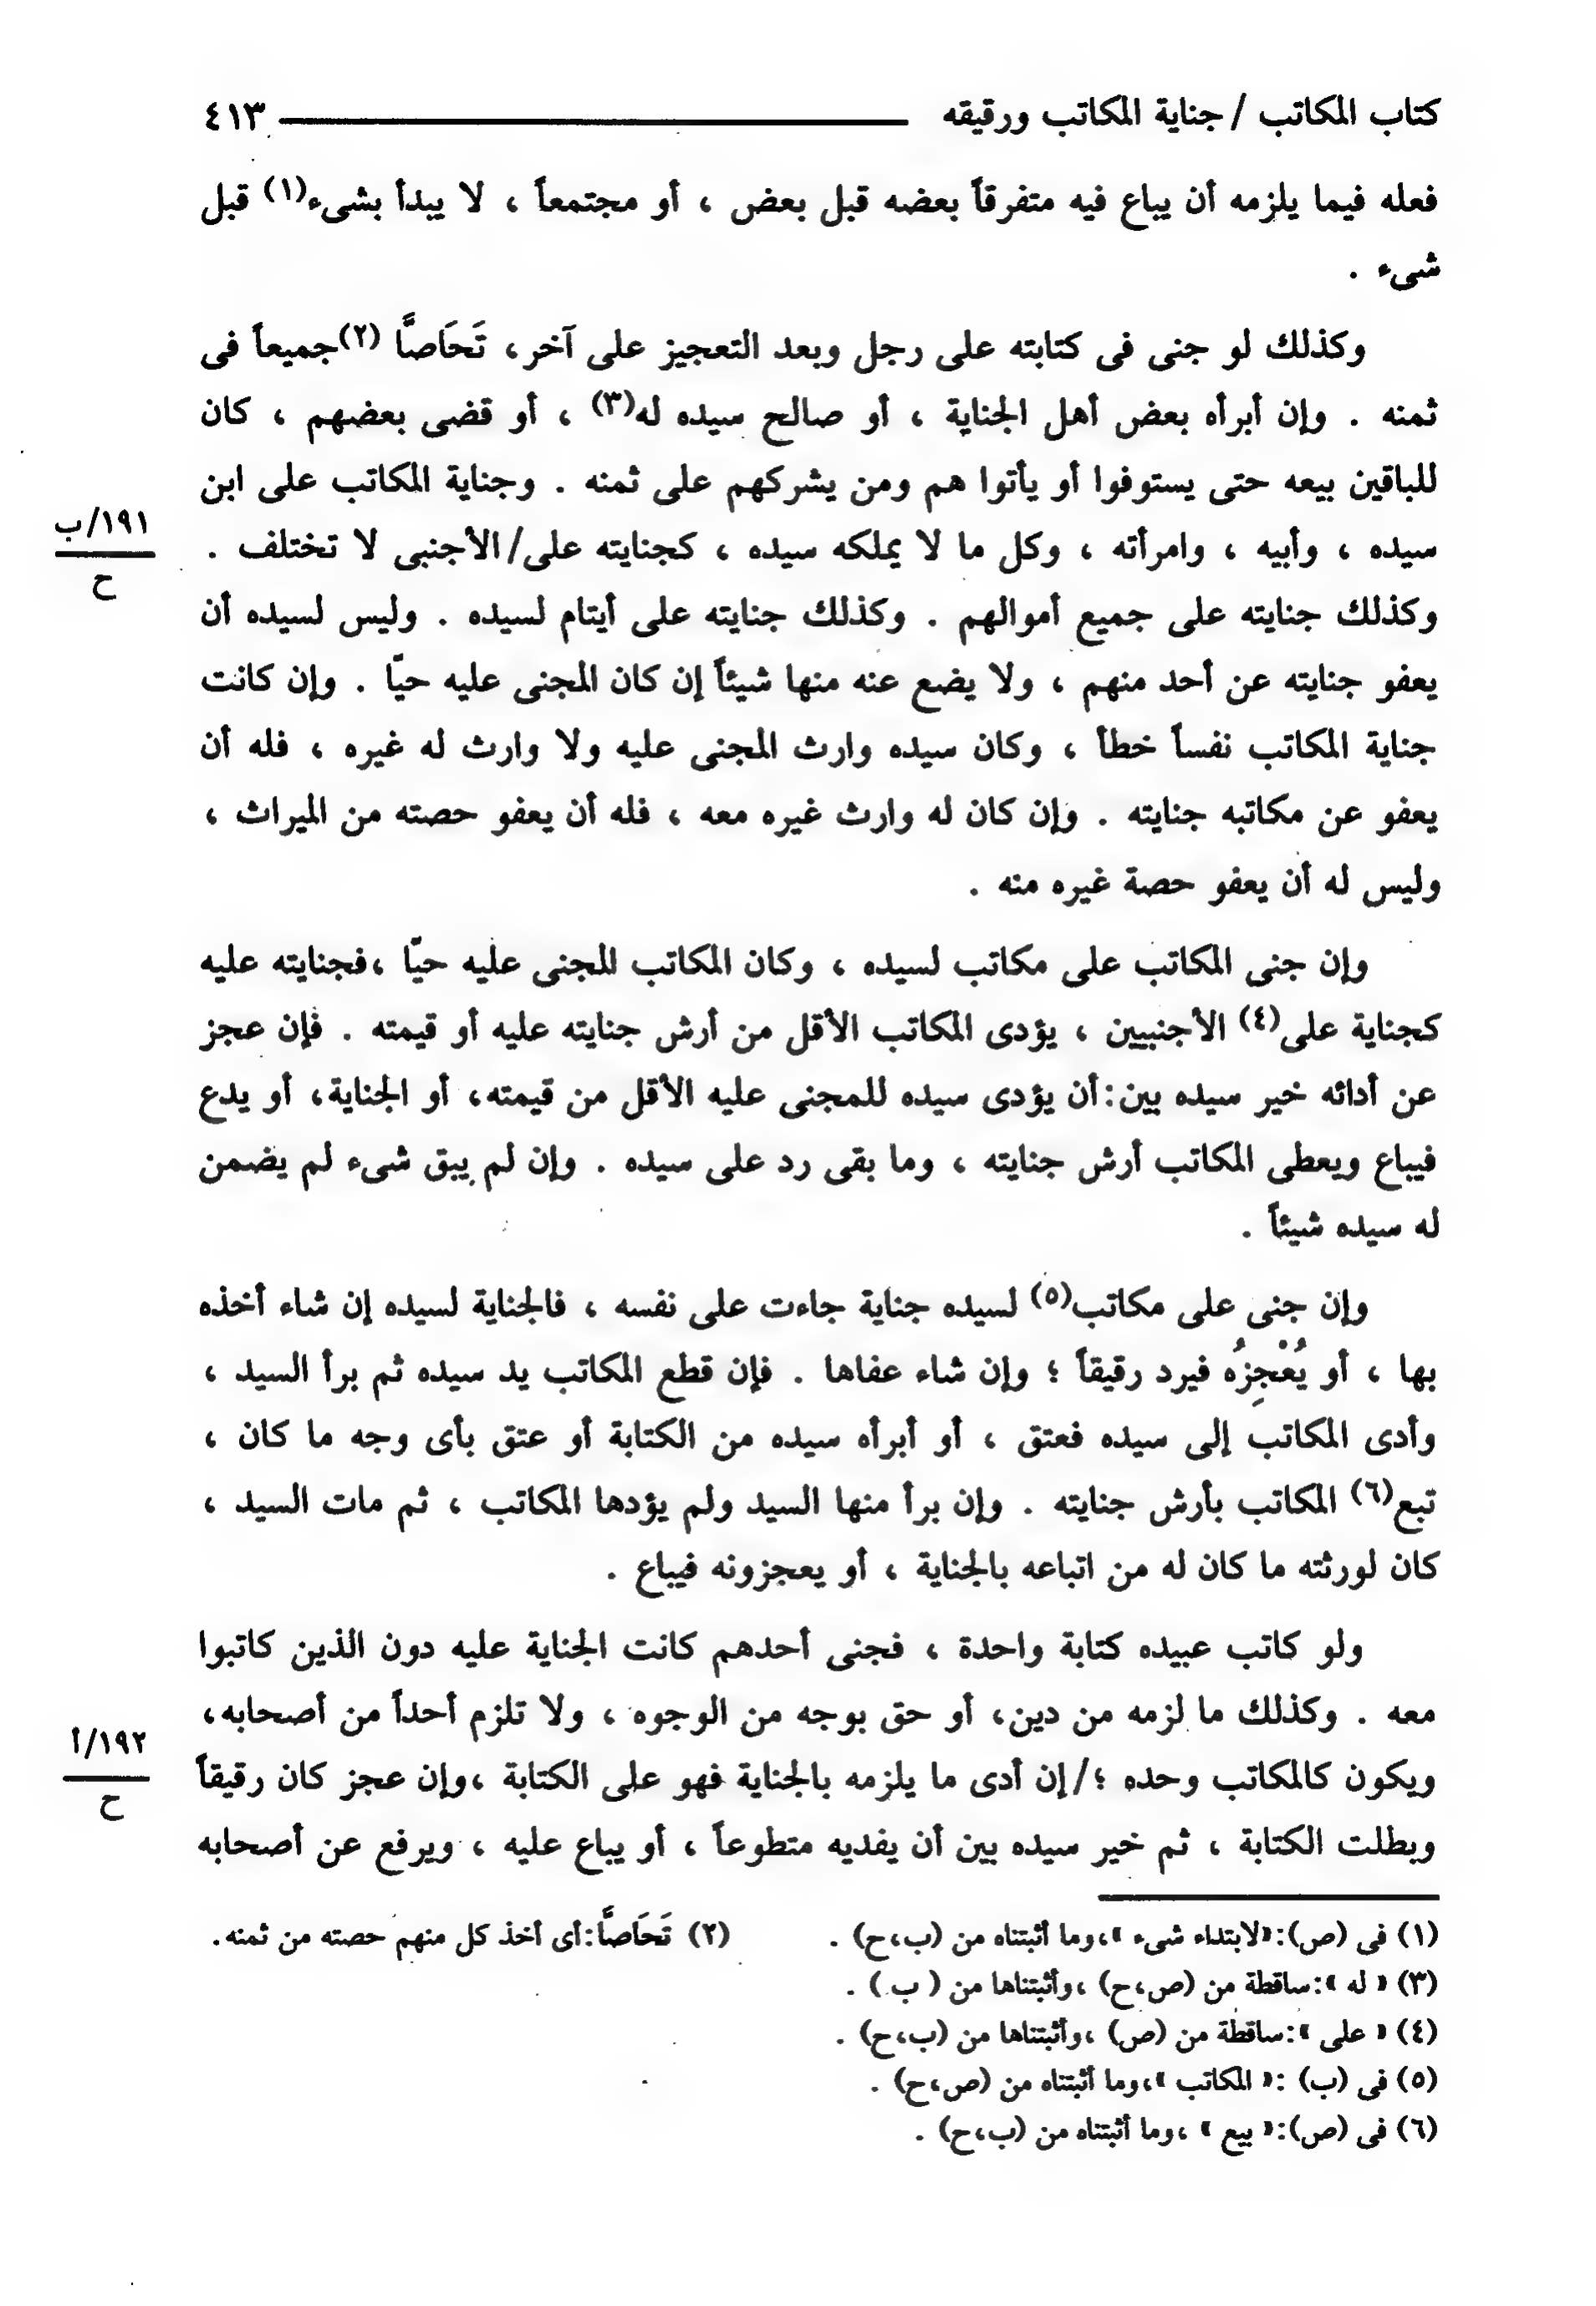 كتاب المكاتب / جناية المكاتب ورقيقه ٤١٣
فعله فيما يلزمه أن يباع فيه متفرقاً بعضه قبل بعض ، أو مجتمعاً ، لا يبدأ بشىء(١) قبل
شىء .
وكذلك لو جنى فى كتابته على رجل وبعد التعجيز على آخر، تَحَاصَّا (٢)جميعاً فى
ثمنه . وإن أبرأه بعض أهل الجناية ، أو صالح سيده له(٣) ، أو قضى بعضهم ، كان
للباقين بيعه حتى يستوفوا أو يأتوا هم ومن يشركهم على ثمنه . وجناية المكاتب على ابن
سيده ، وأبيه ، وامرأته ، وكل ما لا يملكه سيده ، كجنايته على/ الأجنبى لا تختلف .
١٩١/ب
ح
وكذلك جنايته على جميع أموالهم . وكذلك جنايته على أيتام لسيده . وليس لسيده أن
يعفو جنايته عن أحد منهم ، ولا يضع عنه منها شيئاً إن كان المجنى عليه حيّا . وإن كانت
جناية المكاتب نفساً خطأ ، وكان سيده وارث المجنى عليه ولا وارث له غيره ، فله أن
يعفو عن مكاتبه جنايته . وإن كان له وارث غيره معه ، فله أن يعفو حصته من الميراث ،
وليس له أن يعفو حصة غيره منه .
وإن جنى المكاتب على مكاتب لسيده ، وكان المكاتب المجنى عليه حيّا ،فجنايته عليه
كجناية على(٤) الأجنبيين ، يؤدى المكاتب الأقل من أرش جنايته عليه أو قيمته . فإن عجز
عن أدائه خير سيده بين:أن يؤدى سيده للمجنى عليه الأقل من قيمته، أو الجناية، أو يدع
فيباع ويعطى المكاتب أرش جنايته ، وما بقى رد على سيده . وإن لم يبق شىء لم يضمن
له سيده شيئاً .
وإن جنى على مكاتب(٥) لسيده جناية جاءت على نفسه ، فالجناية لسيده إن شاء أخذه
بها ، أو يُعْجِزُه فيرد رقيقاً ؛ وإن شاء عفاها . فإن قطع المكاتب يد سيده ثم برأ السيد ،
وأدى المكاتب إلى سيده فعتق ، أو أبرأه سيده من الكتابة أو عتق بأى وجه ما كان ،
تبع(٦) المكاتب بأرش جنايته . وإن برأ منها السيد ولم يؤدها المكاتب ، ثم مات السيد ،
كان لورثته ما كان له من اتباعه بالجناية ، أو يعجزونه فيباع .
ولو كاتب عبيده كتابة واحدة ، فجنى أحدهم كانت الجناية عليه دون الذين كاتبوا
معه . وكذلك ما لزمه من دين، أو حق بوجه من الوجوه ، ولا تلزم أحداً من أصحابه،
ويكون كالمكاتب وحده ؛/ إن أدى ما يلزمه بالجناية فهو على الكتابة ،وإن عجز كان رقيقاً
١٩٢/أ
ح
وبطلت الكتابة ، ثم خير سيده بين أن يفديه متطوعاً ، أو يباع عليه ، ويرفع عن أصحابه
(١) فى (ص):«لابتداء شىء »،وما أثبتناه من (ب،ح) . (٢) تَحَاصَّا:أى أخذ كل منهم حصته من ثمنه.
(٣) « له »:ساقطة من (ص،ح) ،وأثبتناها من ( ب ) .
(٤) « على »:ساقطة من (ص) ،وأثبتناها من (ب،ح) .
(٥) فى (ب) :« المكاتب »،وما أثبتناه من (ص،ح) .
(٦) فى (ص):« بيع » ،وما أثبتناه من (ب،ح) .